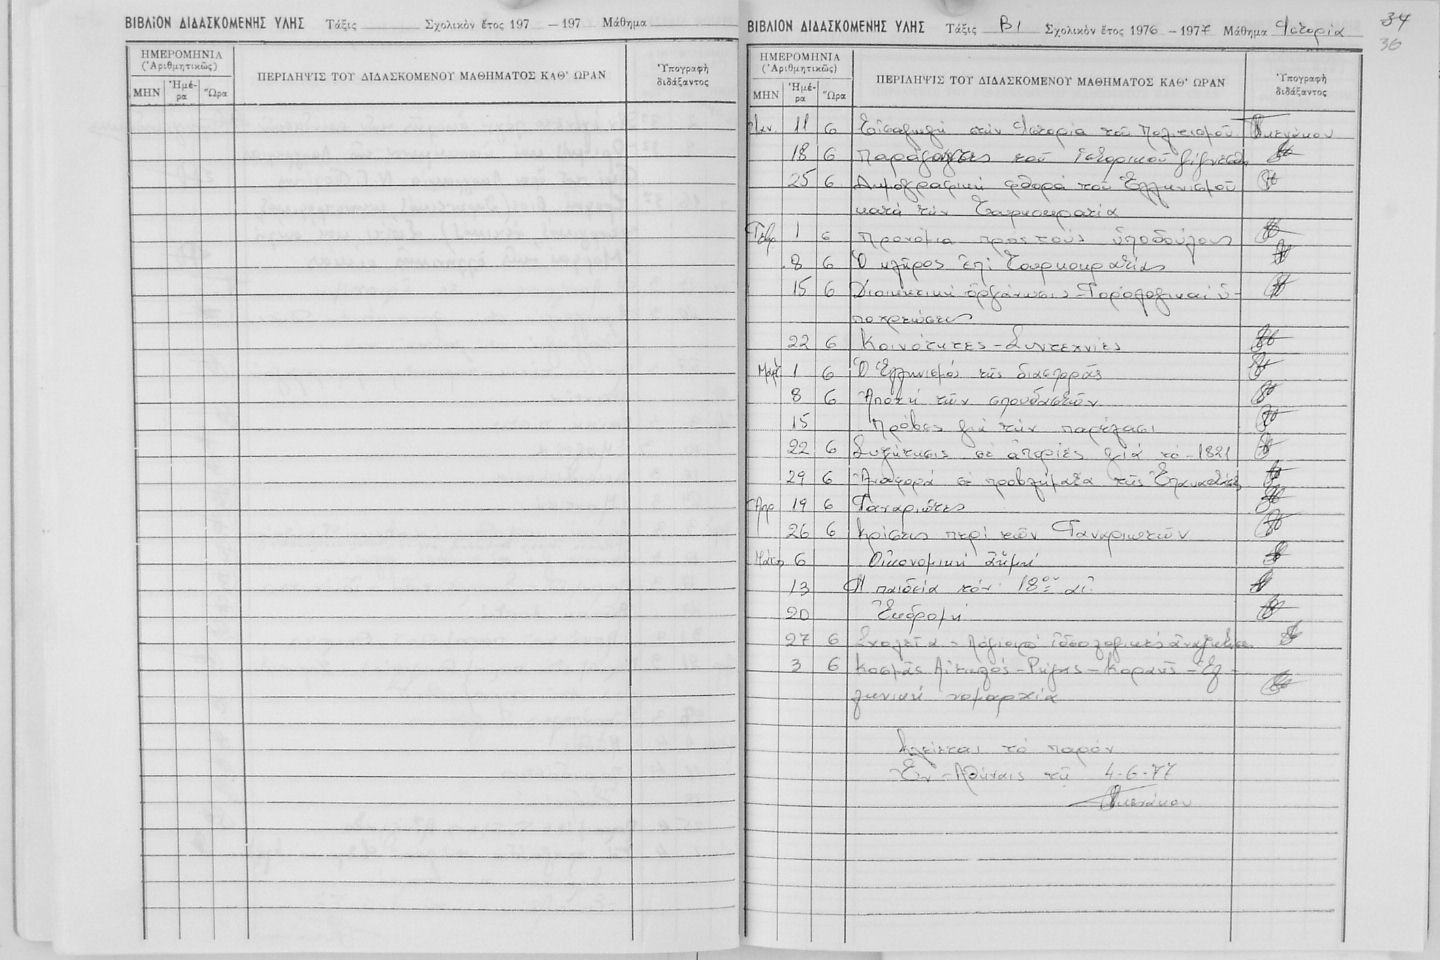 ΒΙΒΛΙΟΝ ΔΙΔΑΣΚΟΜΕΝΗΣ ΥΛΗΣ Τάξις Σχολικὸν ἔτος 197 – 197 Μάθημα
ΗΜΕΡΟΜΗΝΙΑ
(Ἀριθμητικῶς)
ΜΗΝ Ἡμέρα Ὥρα
ΠΕΡΙΛΗΨΙΣ ΤΟΥ ΔΙΔΑΣΚΟΜΕΝΟΥ ΜΑΘΗΜΑΤΟΣ ΚΑΘ' ΩΡΑΝ
Ὑπογραφὴ
διδάξαντος
34
36
ΒΙΒΛΙΟΝ ΔΙΔΑΣΚΟΜΕΝΗΣ ΥΛΗΣ Τάξις Β1 Σχολικὸν ἔτος 1976 – 1977 Μάθημα Ἱστορία
ΗΜΕΡΟΜΗΝΙΑ
(Ἀριθμητικῶς)
ΜΗΝ Ἡμέρα Ὥρα
ΠΕΡΙΛΗΨΙΣ ΤΟΥ ΔΙΔΑΣΚΟΜΕΝΟΥ ΜΑΘΗΜΑΤΟΣ ΚΑΘ' ΩΡΑΝ
Ὑπογραφὴ
διδάξαντος
Ἰαν. 11 6 Εἰσαγωγή στήν Ἱστορία τοῦ Πολιτισμοῦ
18 6 Παράγοντες τοῦ ἱστορικοῦ γίγνεσθαι
25 6 Δημογραφική φθορά τοῦ Ἑλληνισμοῦ
κατά τήν Τουρκοκρατία
Φεβρ 1 6 Προνόμια πρός τούς ὑποδούλους
8 6 Ὁ κλῆρος ἐπί Τουρκοκρατίας
15 6 Διοικητική ὀργάνωσις - Φορολογικαί ὑ-
ποχρεώσεις
22 6 Κοινότητες - Συντεχνίες
Μάρτ 1 6 Ὁ Ἑλληνισμός τῆς διασπορᾶς
8 6 Ἀποχή τῶν σπουδαστῶν
15 Πρόβες γιά τήν παρέλαση
22 6 Συζήτησις σέ ἀπορίες γιά τό 1821
29 6 Ἀναφορά σέ προβλήματα τῆς Ἐπαναστάσεως
Ἀπρ 19 6 Φαναριῶτες
26 6 Κρίσεις περί τῶν Φαναριωτῶν
Μάιος 6 Οἰκονομική ἀκμή
13 Ἡ παιδεία τόν 18ον αἰ.
20 Ἐκδρομή
27 6 Σχολεῖα - Λόγιοι ἰδεολογικές ἀναζητήσεις
3 6 Κοσμᾶς Αἰτωλός - Ρήγας - Κοραῆς - Ἑλ-
ληνική νομαρχία
Κλείεται τό παρόν
Ἐν Ἀθήναις τῇ 4-6-77